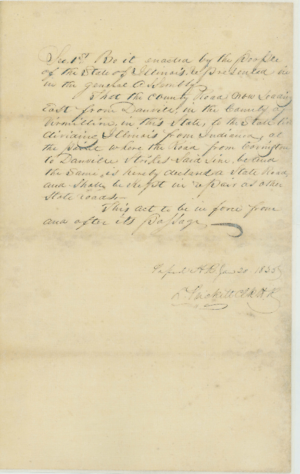 Sect 1st Be it enacted by the People
of the State of Illinois represented in
in the general Assembly
That the County Road now leading
East from Danville, in the County of
Vermillion, in this State, to the State line
dividing Illinois from Indiana, at
the point where the Road from Covington
to Danville strikes said line, be and
the same is hereby declared a State Road
and shall be kept in repair as other
State roads—
This act to be in force from
and after its passage
Passed H R
D Prickett Clk H R